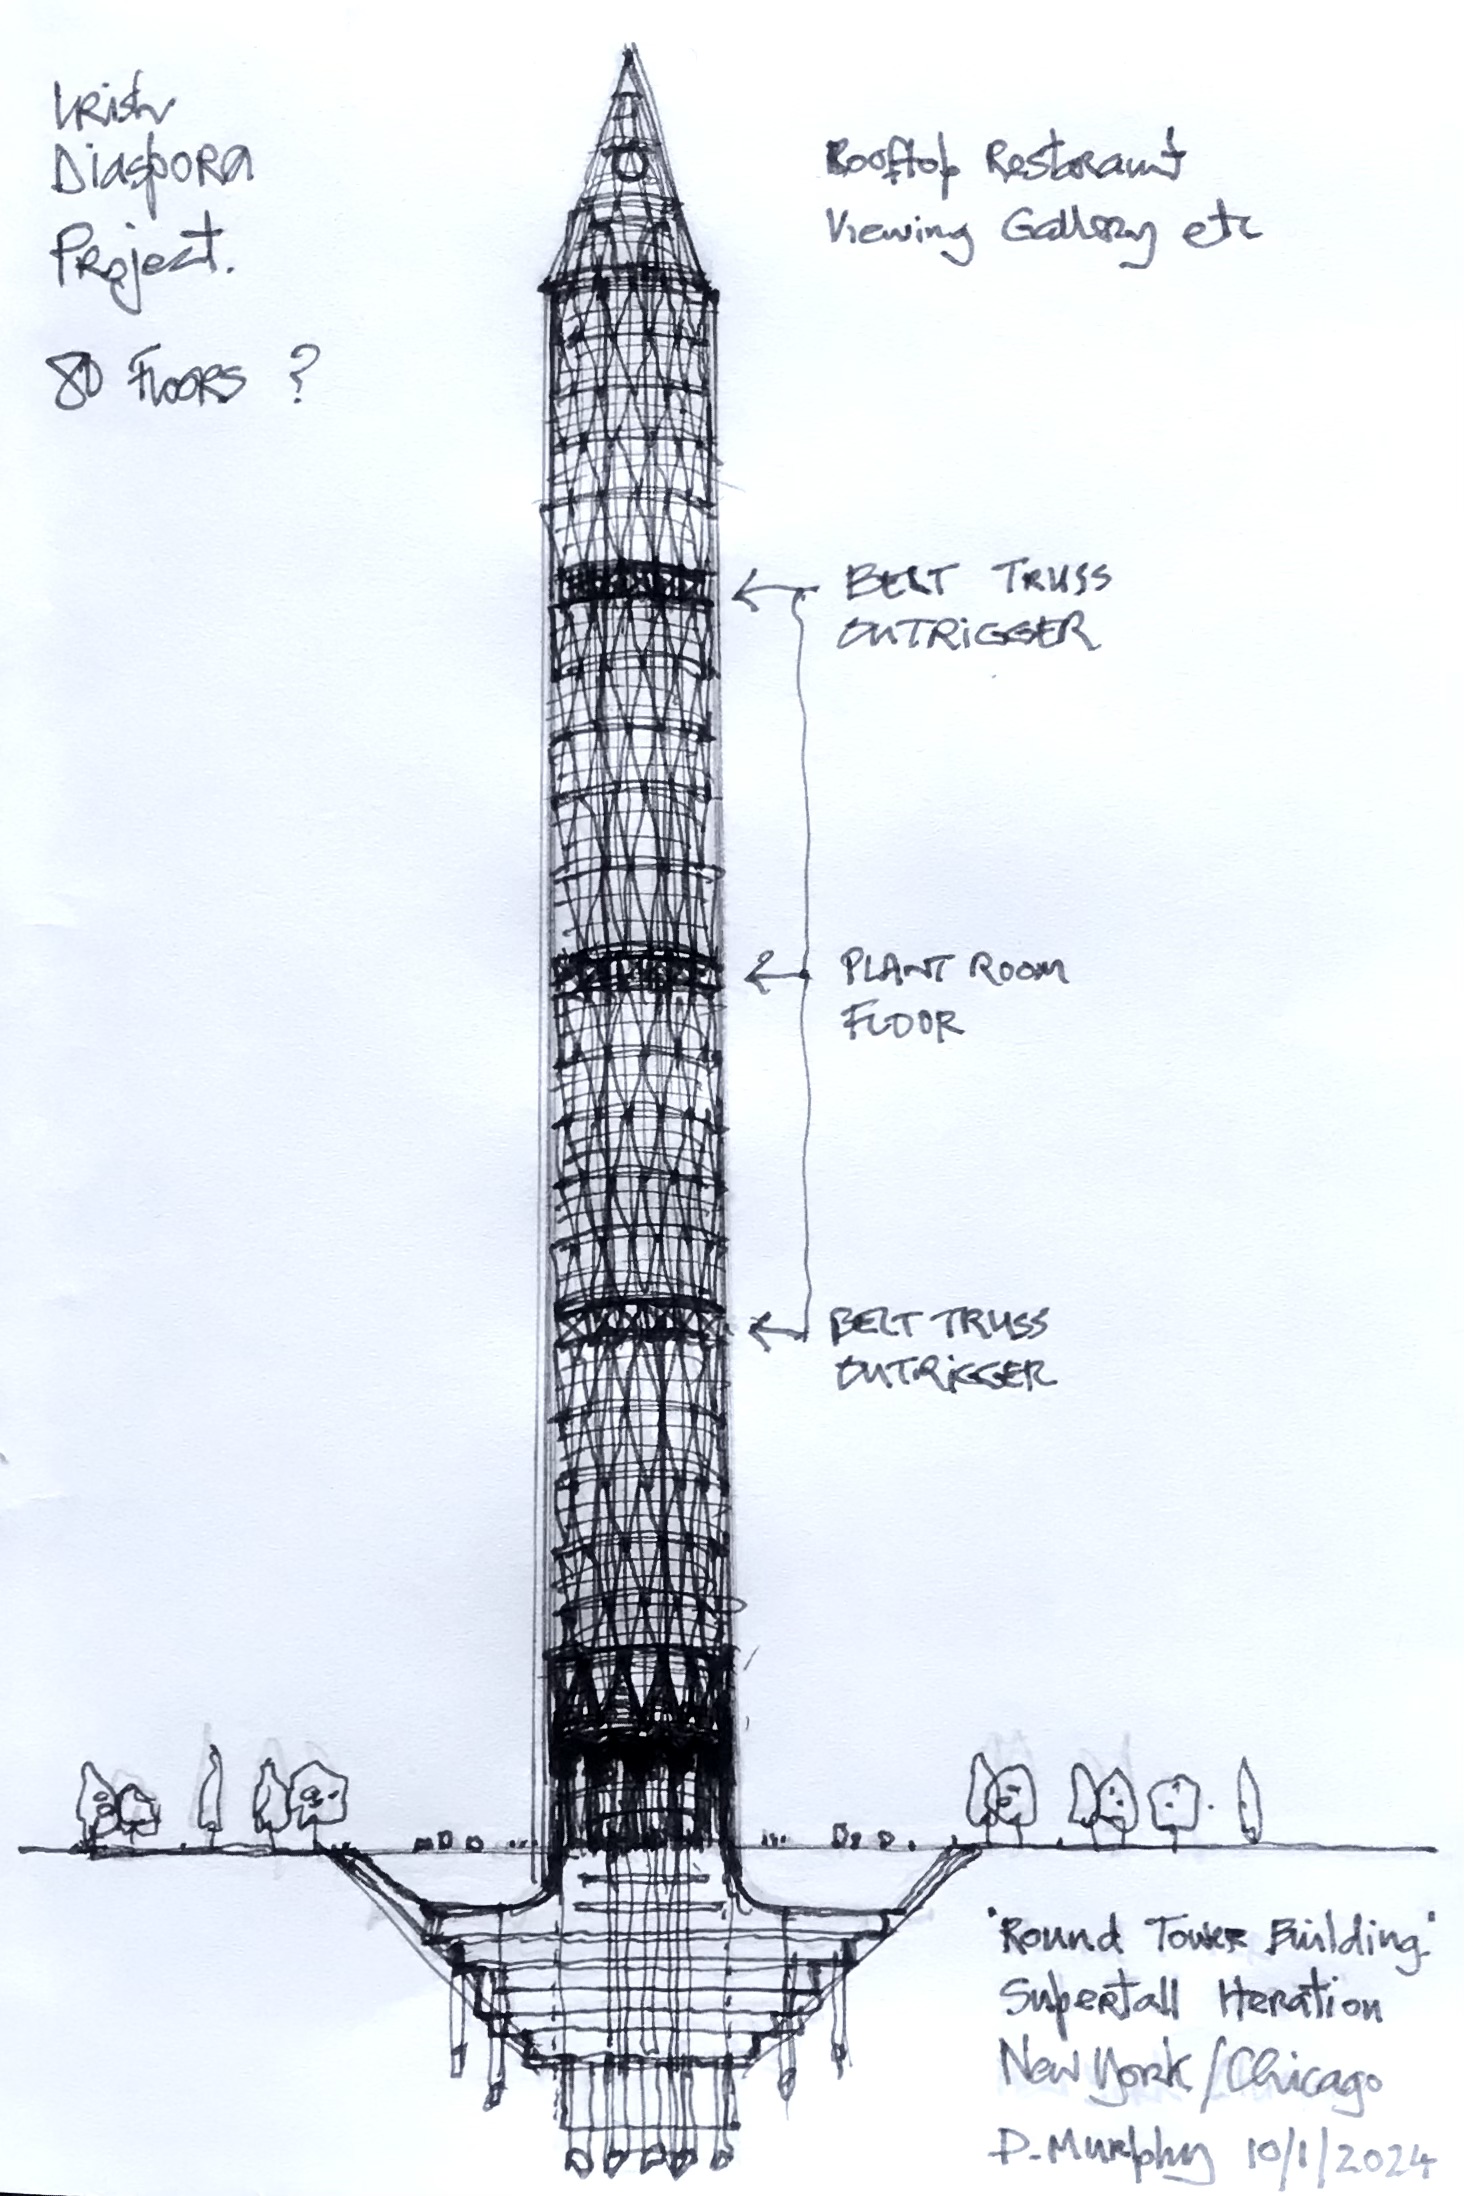 Irish
Diaspora
Project.
80 Floors ?
Rooftop Restaraunt
Viewing Gallery etc
BELT TRUSS
OUTRIGGER
PLANT ROOM
FLOOR
BELT TRUSS
OUTRIGGER
"Round Tower Building."
Supertall Iteration
New York/Chicago
D. Murphy 10/1/2024